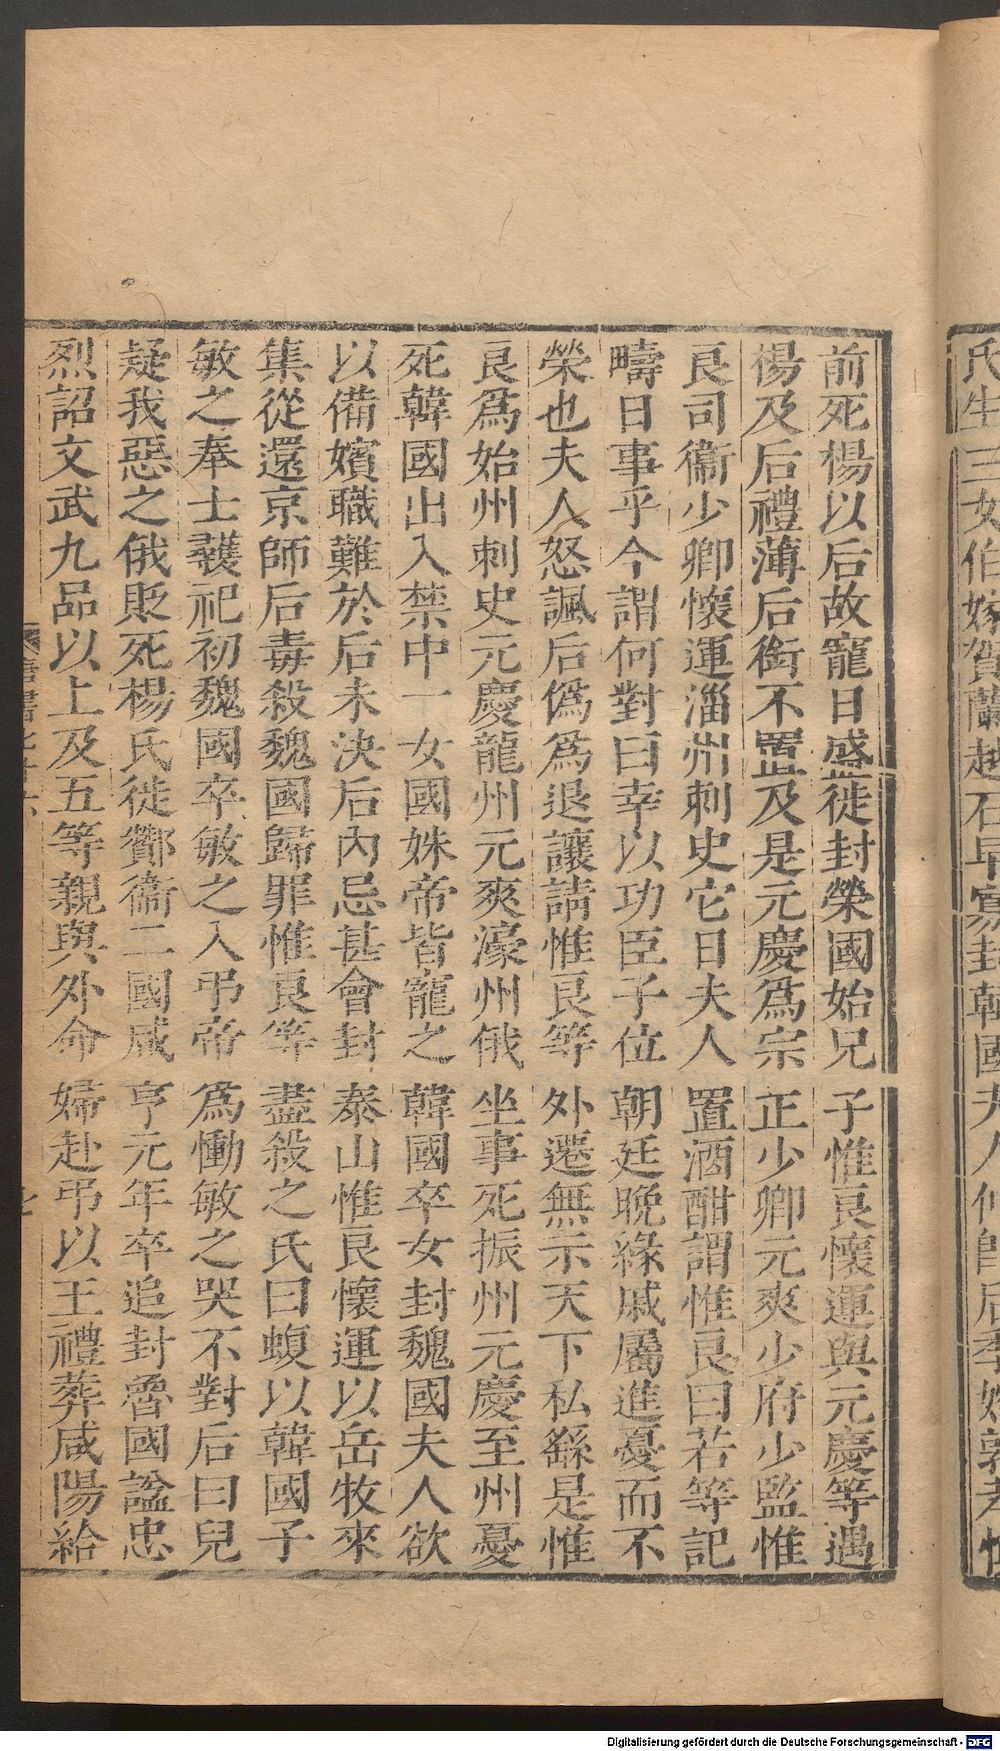 氏生三女伯嫁賀蘭越石早寡封韓國夫人仲即后季嫁郭孝慎
前死楊以后故寵日盛徙封榮國始兄子惟良懷運與元慶等遇
楊及后禮薄后銜不置及是元慶爲宗正少卿元爽少府少監惟
良司衞少卿懷運淄州刺史它日夫人置酒酣謂惟良曰若等記
疇日事乎今謂何對曰幸以功臣子位朝廷晚緣戚屬進憂而不
榮也夫人怒諷后僞爲退讓請惟良等外遷無示天下私繇是惟
良爲始州刺史元慶龍州元爽濠州俄坐事死振州元慶至州憂
死韓國出入禁中一女國姝帝皆寵之韓國卒女封魏國夫人欲
以備嬪職難於后未決后內忌甚會封泰山惟良懷運以岳牧來
集從還京師后毒殺魏國歸罪惟良等盡殺之氏曰蝮以韓國子
敏之奉士彠祀初魏國卒敏之入弔帝爲慟敏之哭不對后曰兒
疑我惡之俄貶死楊氏徙酇衞二國咸亨元年卒追封魯國諡忠
烈詔文武九品以上及五等親與外命婦赴弔以王禮葬咸陽給
唐書 七
Digitalisierung gefördert durch die Deutsche Forschungsgemeinschaft - DFG